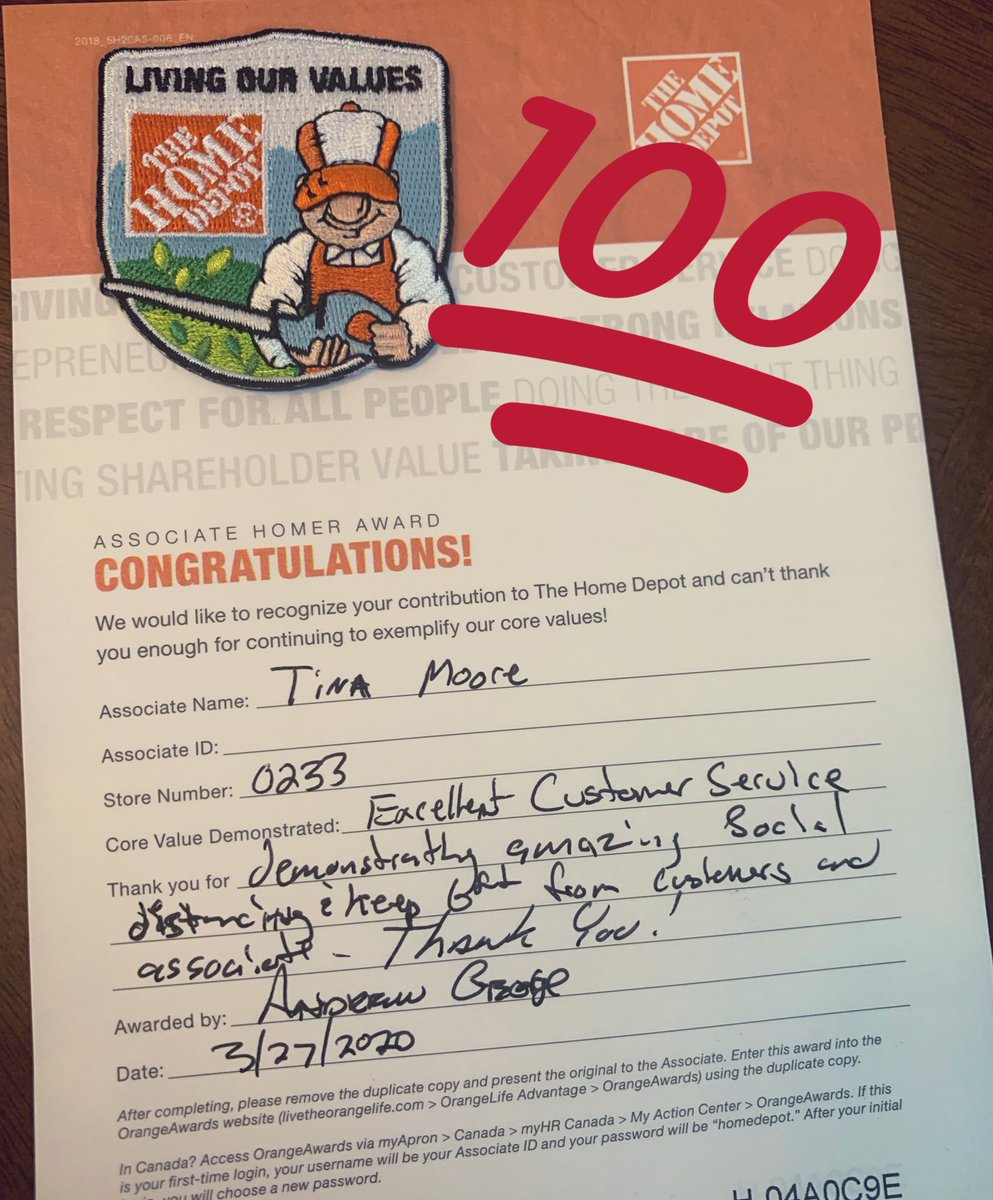 2018_5H20A5-006_EN
LIVING OUR VALUES
THE HOME DEPOT
THE HOME DEPOT
100
GIVING CUSTOMER SERVICE DOING
EPRENEU STRONG RELATIONS
RESPECT FOR ALL PEOPLE DOING THE RIGHT THING
TING SHAREHOLDER VALUE TAKING CARE OF OUR PE
ASSOCIATE HOMER AWARD
CONGRATULATIONS!
We would like to recognize your contribution to The Home Depot and can't thank
you enough for continuing to exemplify our core values!
Associate Name: Tina Moore
Associate ID:
Store Number: 0233
Core Value Demonstrated: Excellent Customer Service
Thank you for demonstrating amazing Social
distancing & keep 6ft from customers and
associates - Thank You!
Awarded by: Andrew George
Date: 3/27/2020
After completing, please remove the duplicate copy and present the original to the Associate. Enter this award into the
OrangeAwards website (livetheorangelife.com > OrangeLife Advantage > OrangeAwards) using the duplicate copy.
In Canada? Access OrangeAwards via myApron > Canada > myHR Canada > My Action Center > OrangeAwards. If this
is your first-time login, your username will be your Associate ID and your password will be "homedepot." After your initial
you will choose a new password.
H 04A0C9E